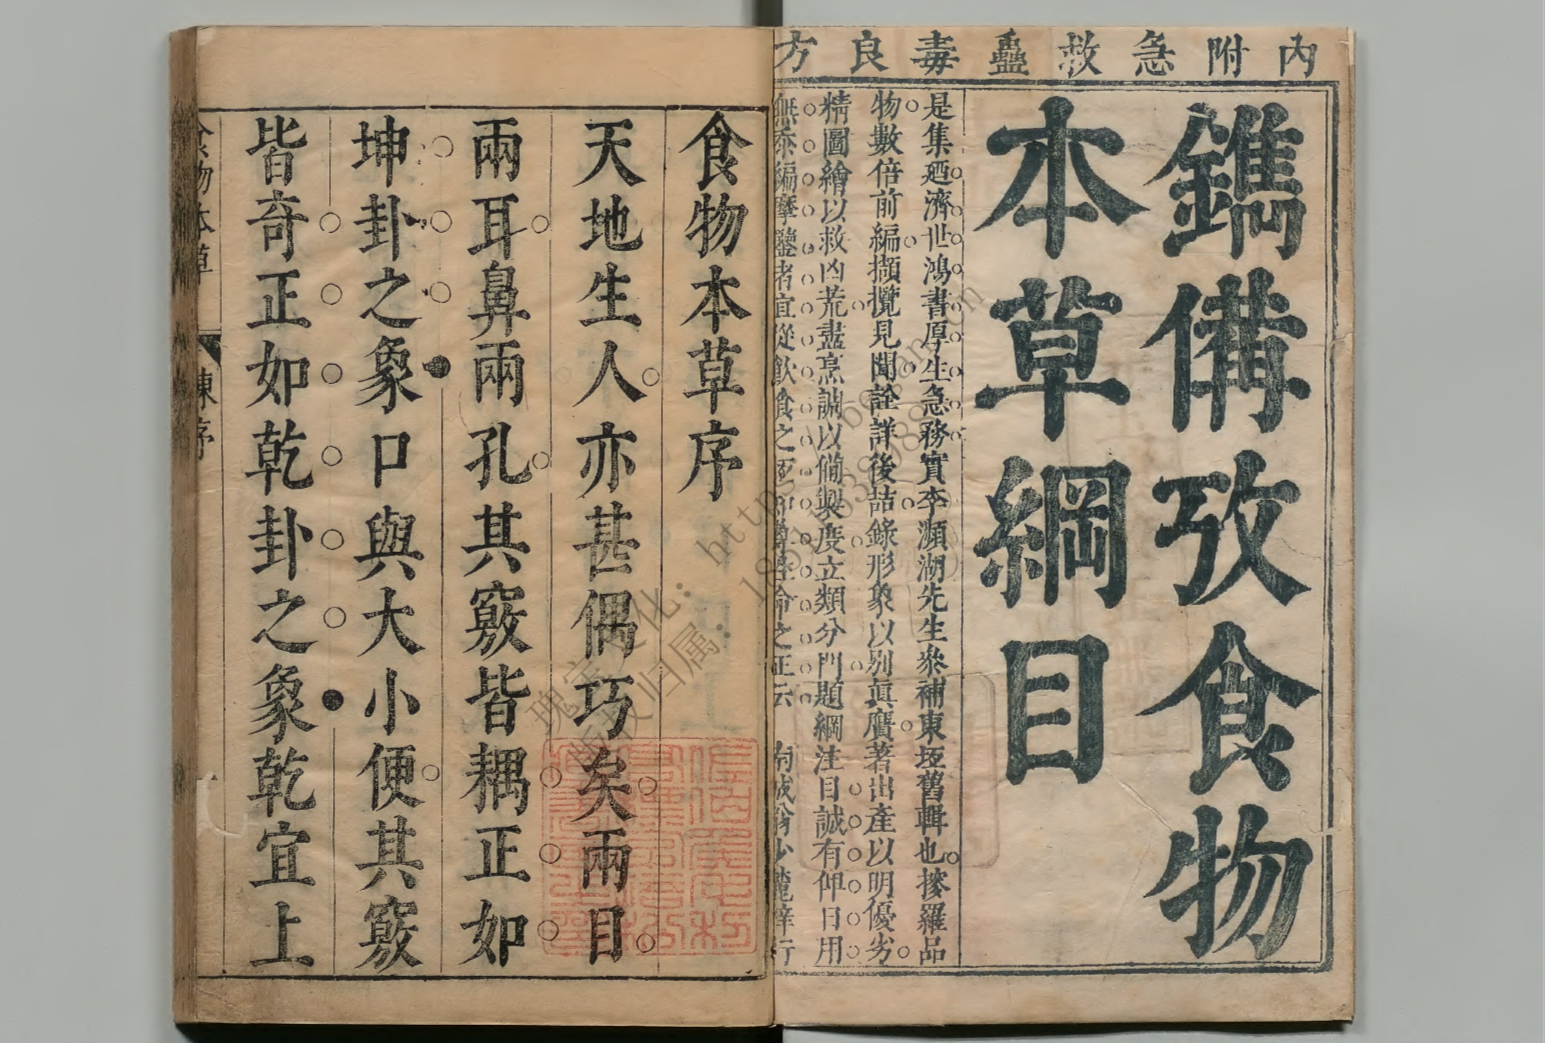 內附急救蠱毒良方
鐫備攷食物
本草綱目
是集廼濟世鴻書厚生急務實李瀕湖先生叅補東垣舊輯也摻羅品
物數倍前編擷攬見聞詮詳後詰錄形象以別眞贋著出產以明優劣
精圖繪以救凶荒盡烹調以備製度立類分門題綱注目誠有俾日用
食物本草序
天地生人亦甚偶巧矣兩目
兩耳鼻兩孔其竅皆耦正如
坤卦之象口與大小便其竅
皆奇正如乾卦之象乾宜上
食物本草
陳序